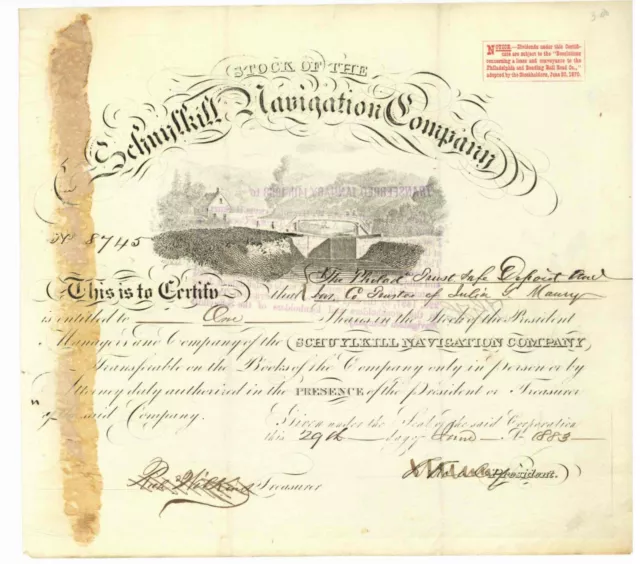 NOTICE.—Dividends under this Certifi-
cate are subject to the "Resolutions
concerning a lease and conveyance to the
Philadelphia and Reading Rail Road Co.,"
adopted by the Stockholders, June 20, 1870.
STOCK OF THE
Schuylkill Navigation Company
TRANSFERRED JANUARY
No 8745
This is to Certify that The Philad Trust Safe Deposit and
Ins. Co Trustee of Julia Maury
is entitled to One Shares in the Stock of the President
Managers and Company of the SCHUYLKILL NAVIGATION COMPANY
Transferable on the Books of the Company only in person or by
Attorney duly authorized in the PRESENCE of the President or Treasurer
of the said Company. Given under the Seal of the said Corporation
this 29th day of June 1883
Treasurer
President.